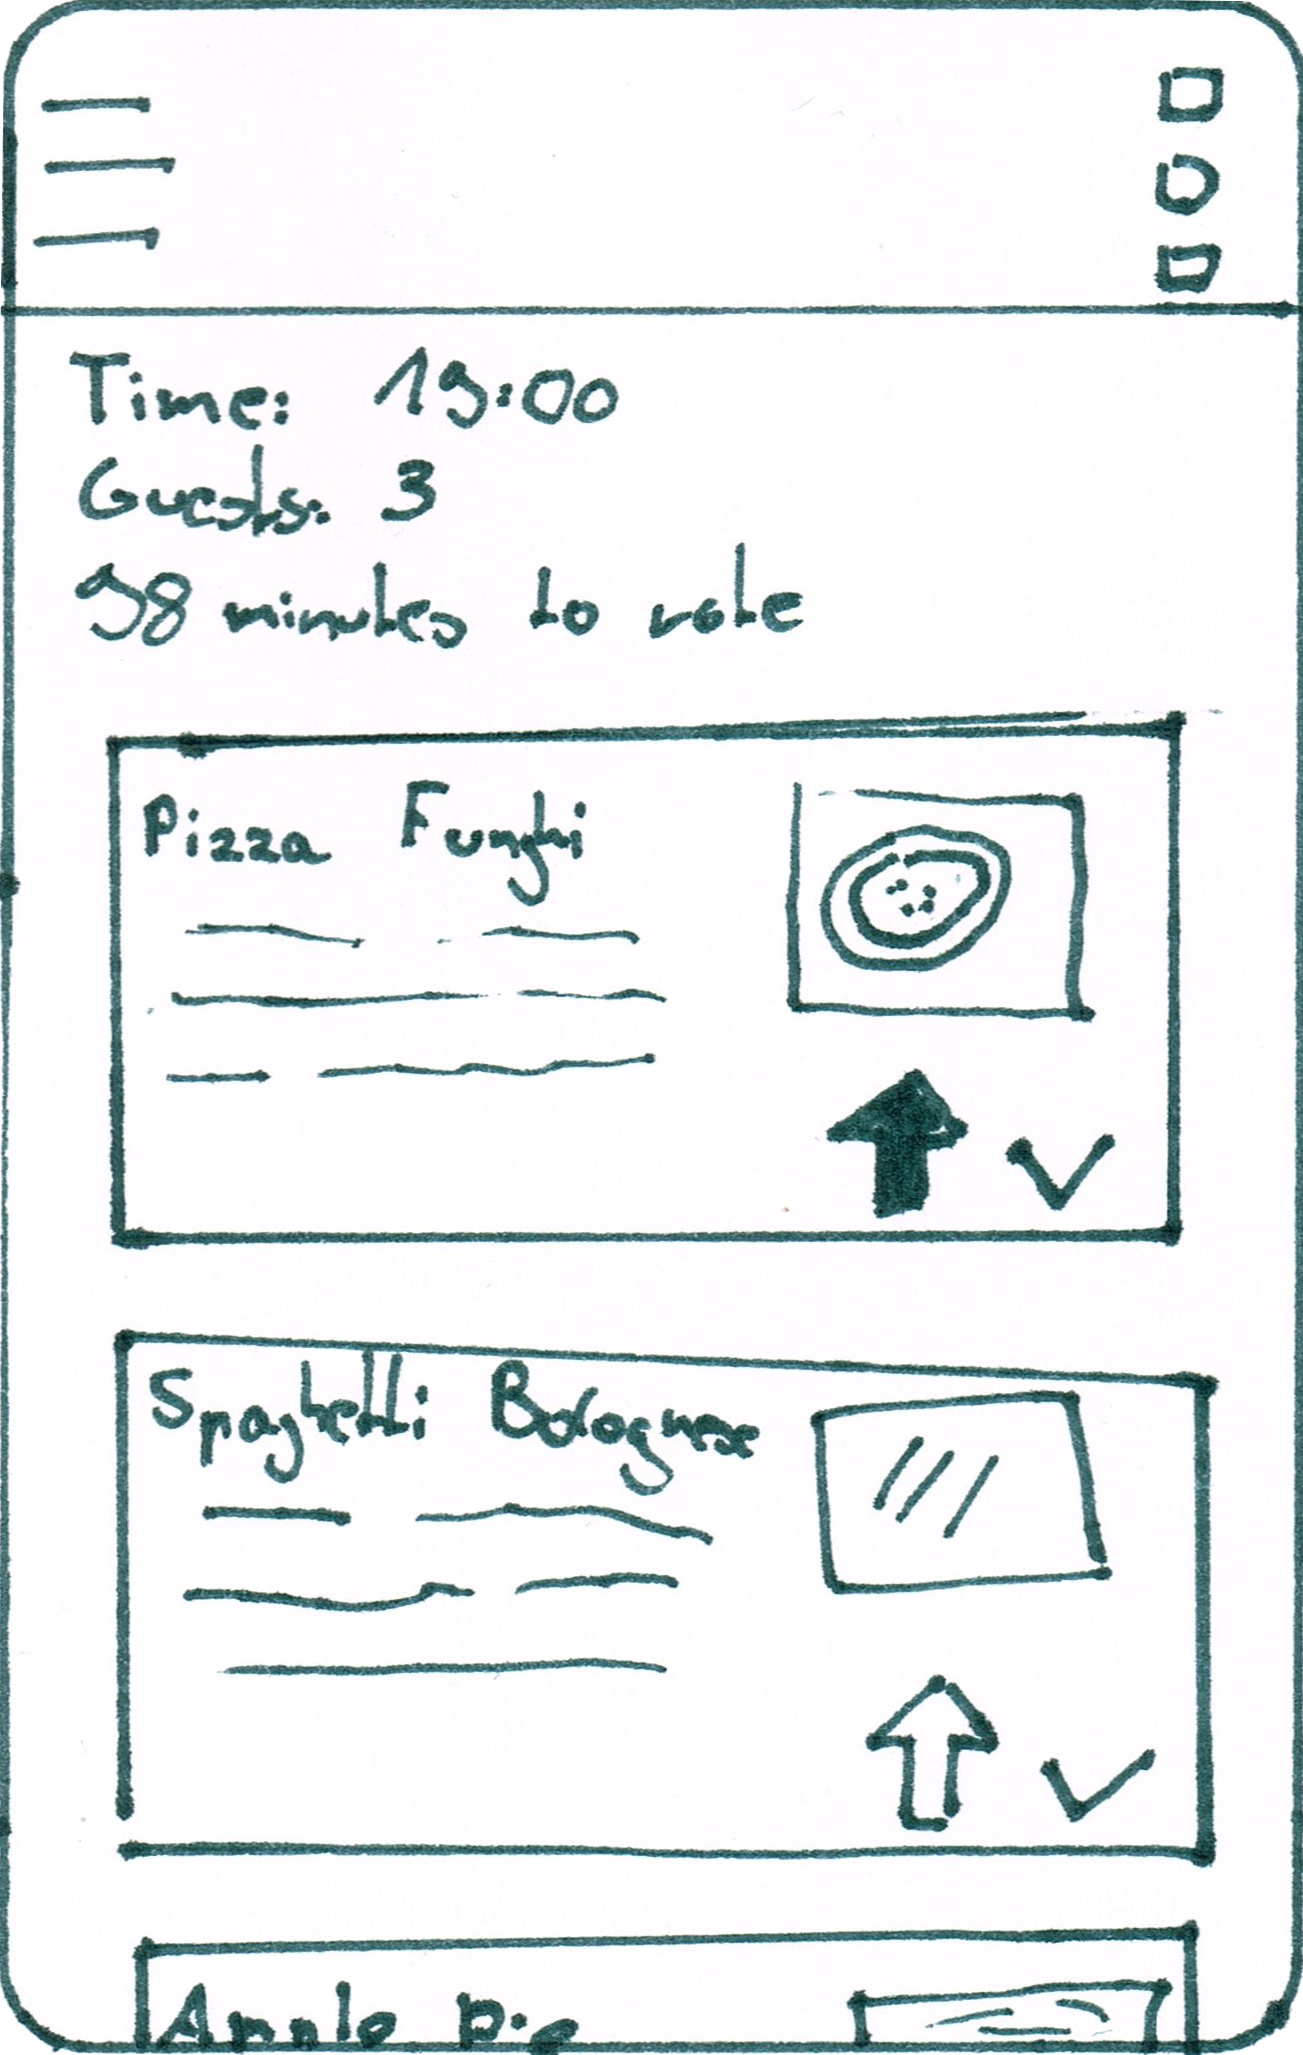 Time: 19:00
Guests: 3
98 minutes to vote
Pizza Funghi
Spaghetti Bolognese
Apple Pie